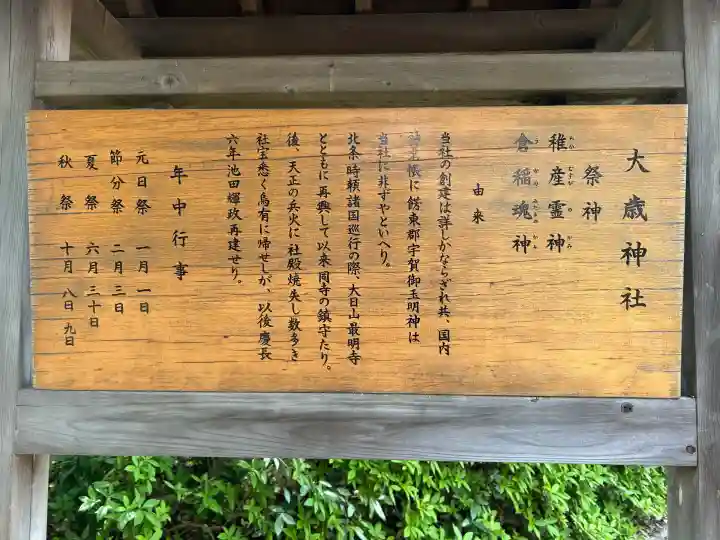 大歳神社
祭神
稚産霊神
倉稲魂神
由来
当社の創建は詳しかならざれ共、国内
神主帳に餝東郡宇賀御玉明神は
当社に非ずやといへり。
北条時頼諸国巡行の際、大日山最明寺
とともに再興して以来同寺の鎮守たり。
後、天正の兵火に社殿焼失し数多き
社宝悉く烏有に帰せしが、以後慶長
六年池田輝政再建せり。
年中行事
元日祭 一月一日
節分祭 二月三日
夏祭 六月三十日
秋祭 十月八日、九日